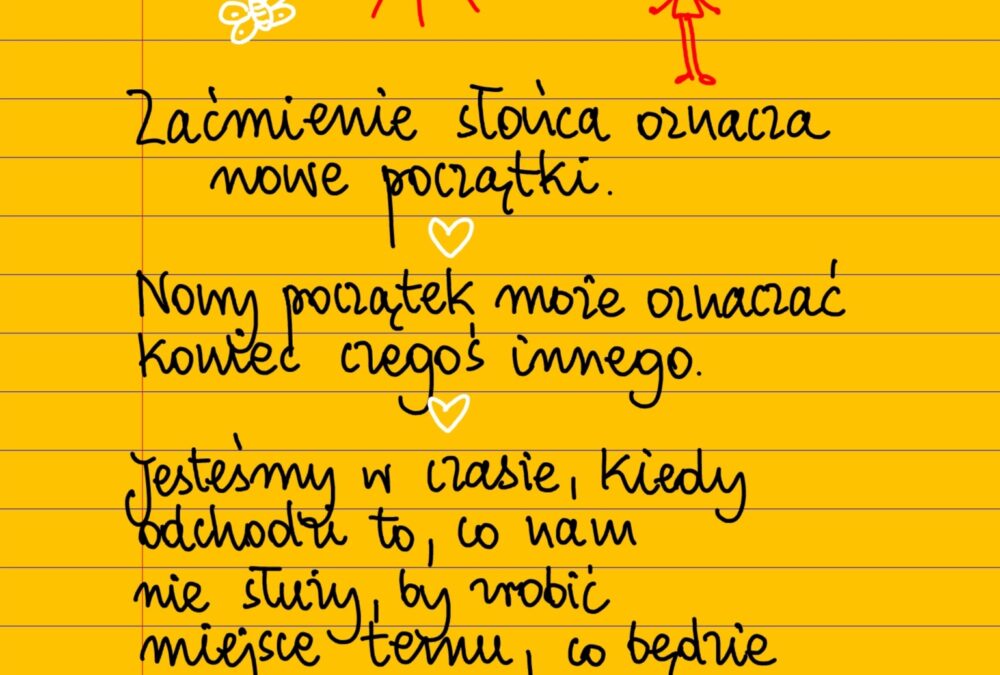 Zaćmienie słońca oznacza
nowe początki.
Nowy początek może oznaczać
koniec czegoś innego.
Jesteśmy w czasie, kiedy
odchodzi to, co nam
nie służy, by zrobić
miejsce temu, co będzie